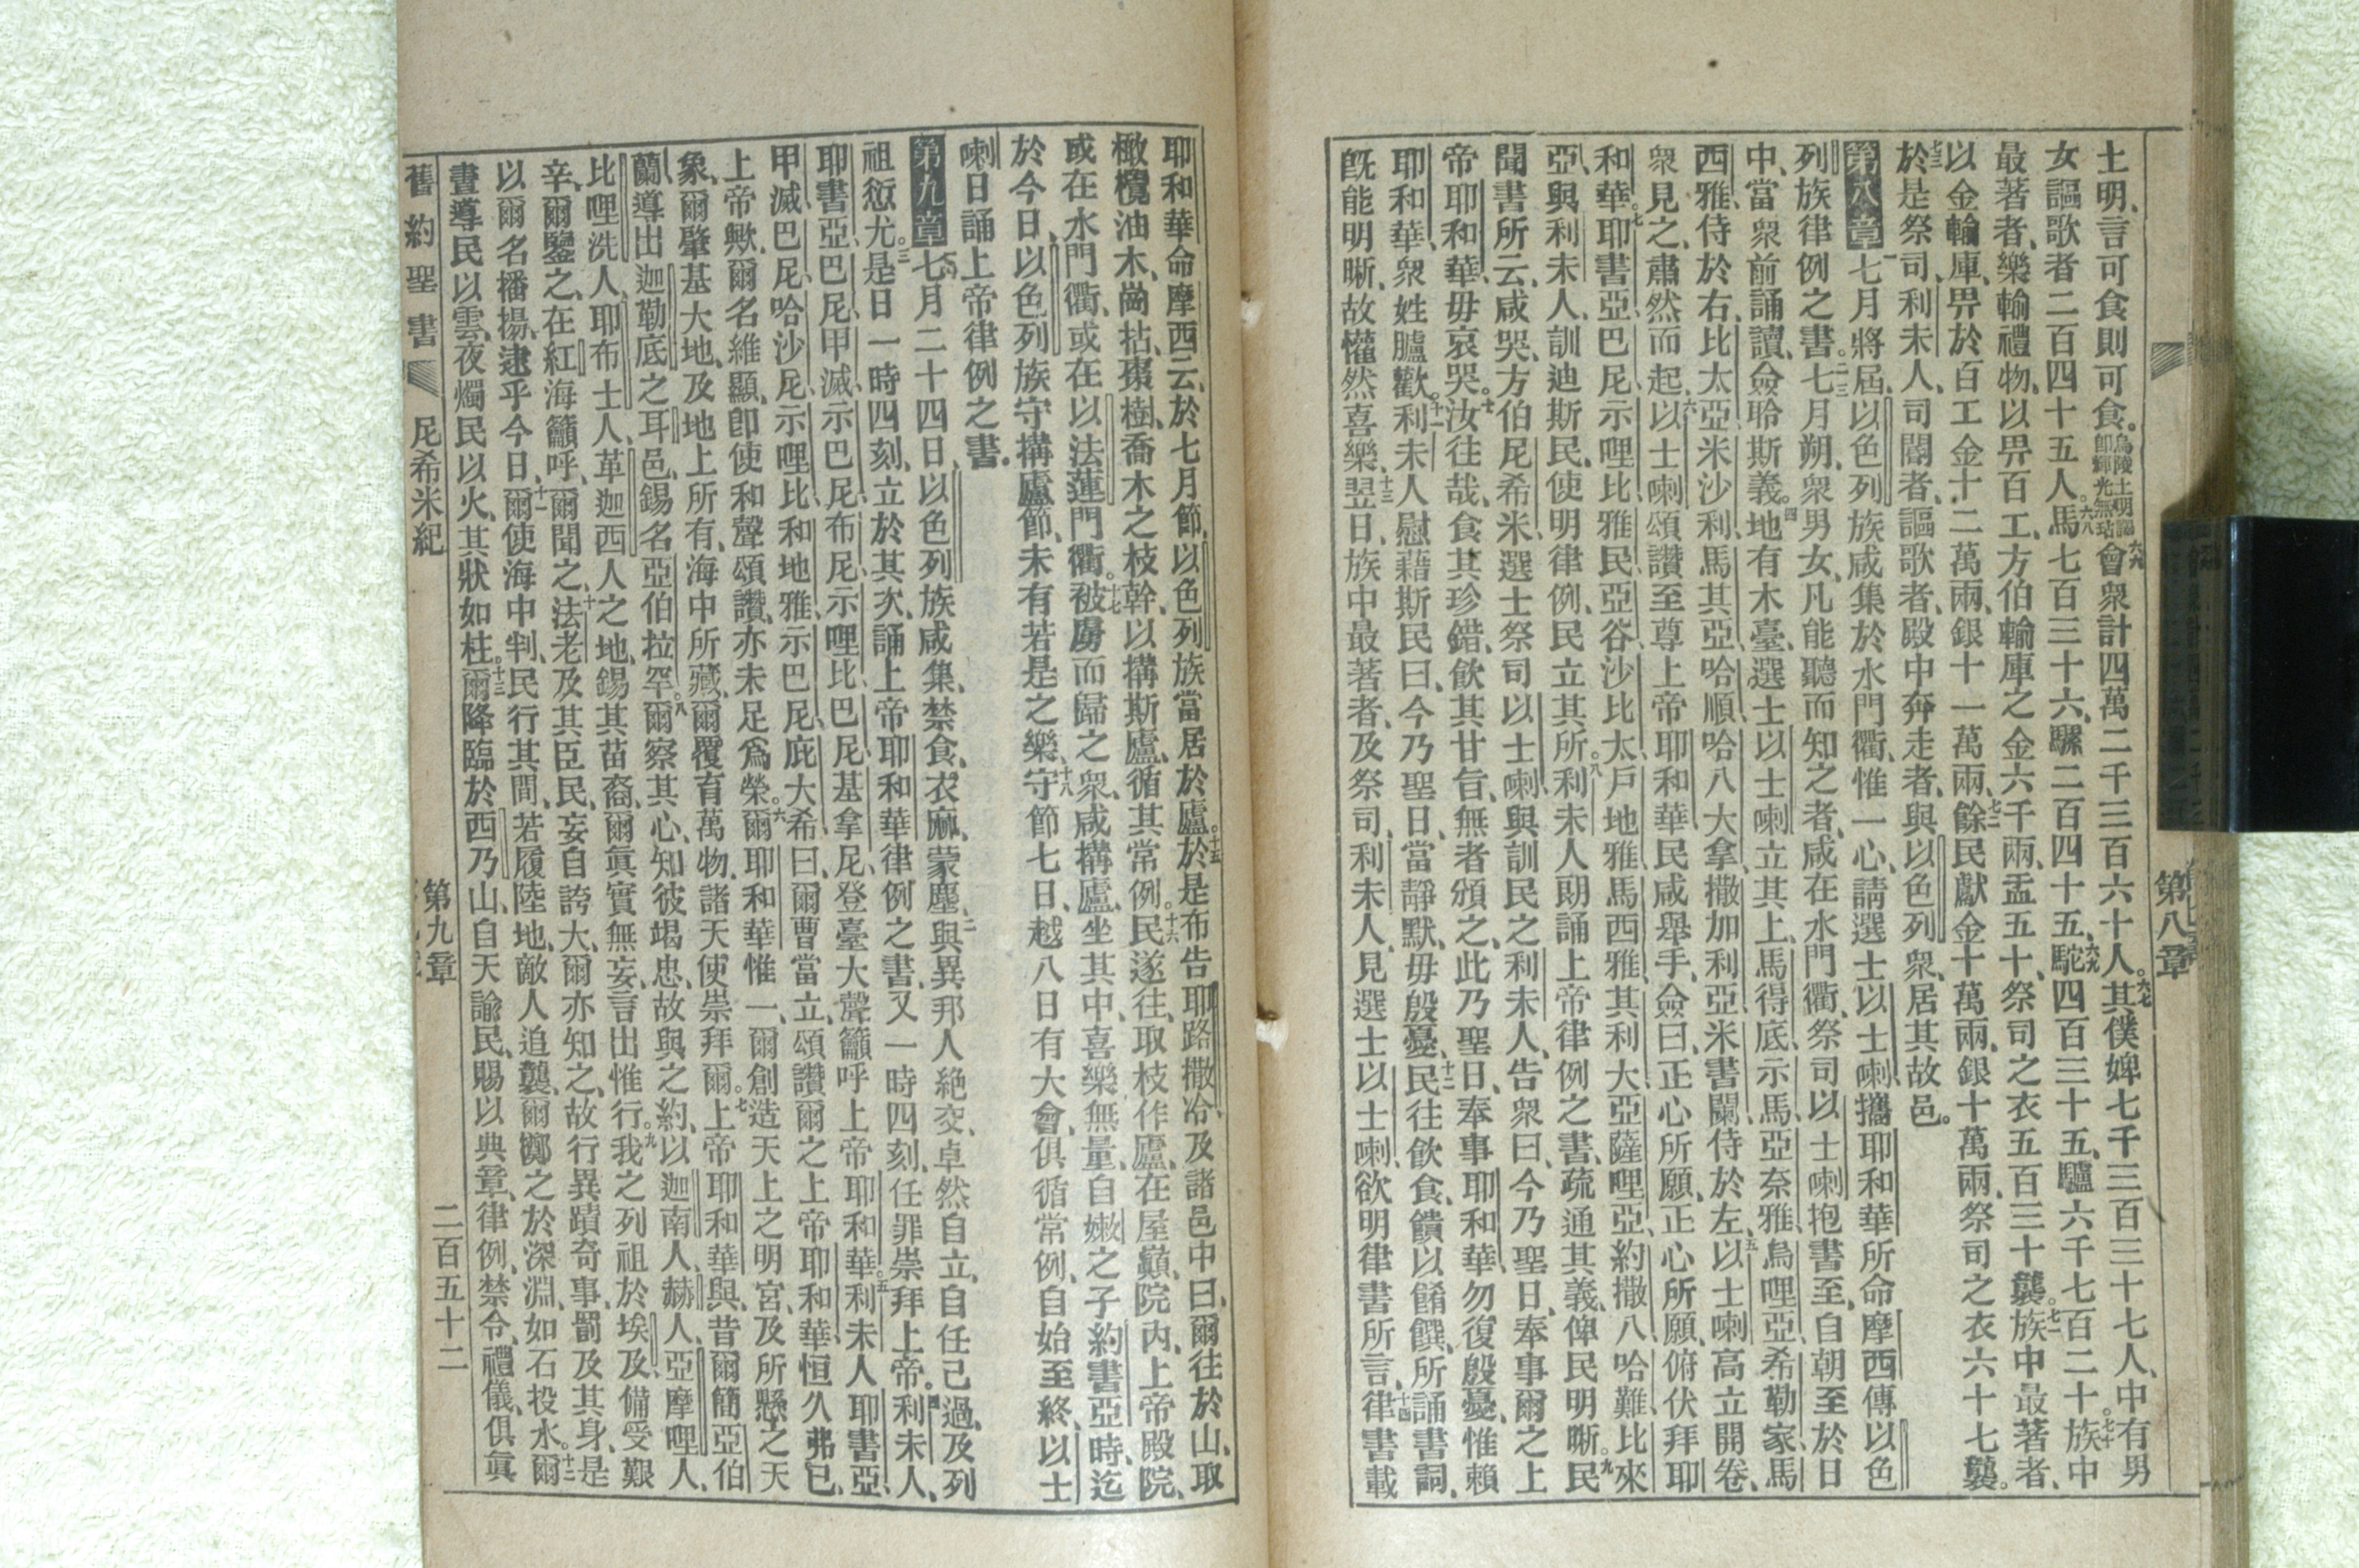 土明、言可食則可食。烏陵土明譯即輝光無玷六六會衆計四萬二千三百六十人。六七其僕婢七千三百三十七人、中有男
女謳歌者二百四十五人。六八馬七百三十六、騾二百四十五、六九駝四百三十五、驢六千七百二十。七十族中
最著者、樂輸禮物、以畀百工、方伯輸庫之金六千兩、盂五十、祭司之衣五百三十襲。七一族中最著者、
以金輸庫、畀於百工金十二萬兩、銀十一萬兩、七二餘民獻金十萬兩、銀十萬兩、祭司之衣六十七襲。
七三於是祭司、利未人、司閽者、謳歌者、殿中奔走者、與以色列衆、居其故邑。
第八章一七月將屆、以色列族咸集於水門衢、惟一心、請選士以士喇、攜耶和華所命摩西傳以色
列族律例之書。二三七月朔、衆男女、凡能聽而知之者、咸在水門衢、祭司以士喇抱書至、自朝至於日
中、當衆前誦讀、僉聆斯義。四地有木臺、選士以士喇立其上、馬得底、示馬、亞奈雅、烏哩亞、希勒家、馬
西雅、侍於右、比太亞、米沙利、馬其亞、哈順、哈八大拿、撒加利亞、米書闌、侍於左、五以士喇高立開卷、
衆見之、肅然而起、六以士喇頌讚至尊上帝耶和華、民咸舉手、僉曰、正心所願、正心所願、俯伏拜耶
和華。七耶書亞、巴尼、示哩比、雅民、亞谷、沙比太、戶地雅、馬西雅、其利大、亞薩哩亞、約撒八、哈難、比來
亞、與利未人、訓迪斯民、使明律例、民立其所。八利未人朗誦上帝律例之書、疏通其義、俾民明晰。九民
聞書所云、咸哭、方伯尼希米、選士祭司以士喇、與訓民之利未人、告衆曰、今乃聖日、奉事爾之上
帝耶和華、毋哀哭。十汝往哉、食其珍錯、飲其甘旨、無者頒之、此乃聖日、奉事耶和華、勿復殷憂、惟賴
耶和華、衆姓臚歡。十一利未人慰藉斯民曰、今乃聖日、當靜默、毋殷憂、十二民往飲食、饋以餚饌、所誦書詞、
旣能明晰、故懽然喜樂、十三翌日、族中最著者、及祭司、利未人、見選士以士喇、欲明律書所言、十四律書載
第八章
耶和華命摩西云、於七月節、以色列族當居於廬。十五於是布告耶路撒冷、及諸邑中曰、爾往於山、取
橄欖油木、崗拈、棗樹、喬木之枝幹、以搆斯廬、循其常例。十六民遂往、取枝作廬、在屋巔、院內、上帝殿院、
或在水門衢、或在以法蓮門衢。十七被虜而歸之衆、咸搆廬、坐其中、喜樂無量、自嫩之子約書亞時、迄
於今日、以色列族守搆廬節、未有若是之樂、十八守節七日、越八日有大會、俱循常例、自始至終、以士
喇日誦上帝律例之書。
第九章一七月二十四日、以色列族咸集、禁食、衣麻、蒙塵、二與異邦人絕交、卓然自立、自任己過、及列
祖愆尤。三是日一時四刻、立於其次、誦上帝耶和華律例之書、又一時四刻、任罪崇拜上帝。四利未人、
耶書亞、巴尼、甲滅、示巴尼、布尼、示哩比、巴尼、基拿尼、登臺大聲籲呼上帝耶和華。五利未人耶書亞、
甲滅、巴尼、哈沙尼、示哩比、和地雅、示巴尼、庇大希曰、爾曹當立、頌讚爾之上帝耶和華、恒久弗已、
上帝歟、爾名維顯、卽使和聲頌讚、亦未足爲榮。六爾耶和華惟一、爾創造天上之明宮、及所懸之天
象、爾肇基大地、及地上所有、海中所藏、爾覆育萬物、諸天使崇拜爾。七上帝耶和華與、昔爾簡亞伯
蘭、導出迦勒底之耳邑、錫名亞伯拉罕。八爾察其心、知彼竭忠、故與之約、以迦南人、赫人、亞摩哩人、
比哩洗人、耶布士人、革迦西人之地、錫其苗裔、爾眞實無妄、言出惟行。九我之列祖於埃及、備受艱
辛、爾鑒之、在紅海籲呼、爾聞之、十法老及其臣民、妄自誇大、爾亦知之、故行異蹟奇事、罰及其身、是
以爾名播揚、逮乎今日、十一爾使海中判、民行其間、若履陸地、敵人追襲、爾擲之於深淵、如石投水。十二爾
晝導民以雲、夜燭民以火、其狀如柱。十三爾降臨於西乃山、自天諭民、賜以典章、律例、禁令、禮儀、俱眞
舊約聖書 尼希米紀 第九章 二百五十二